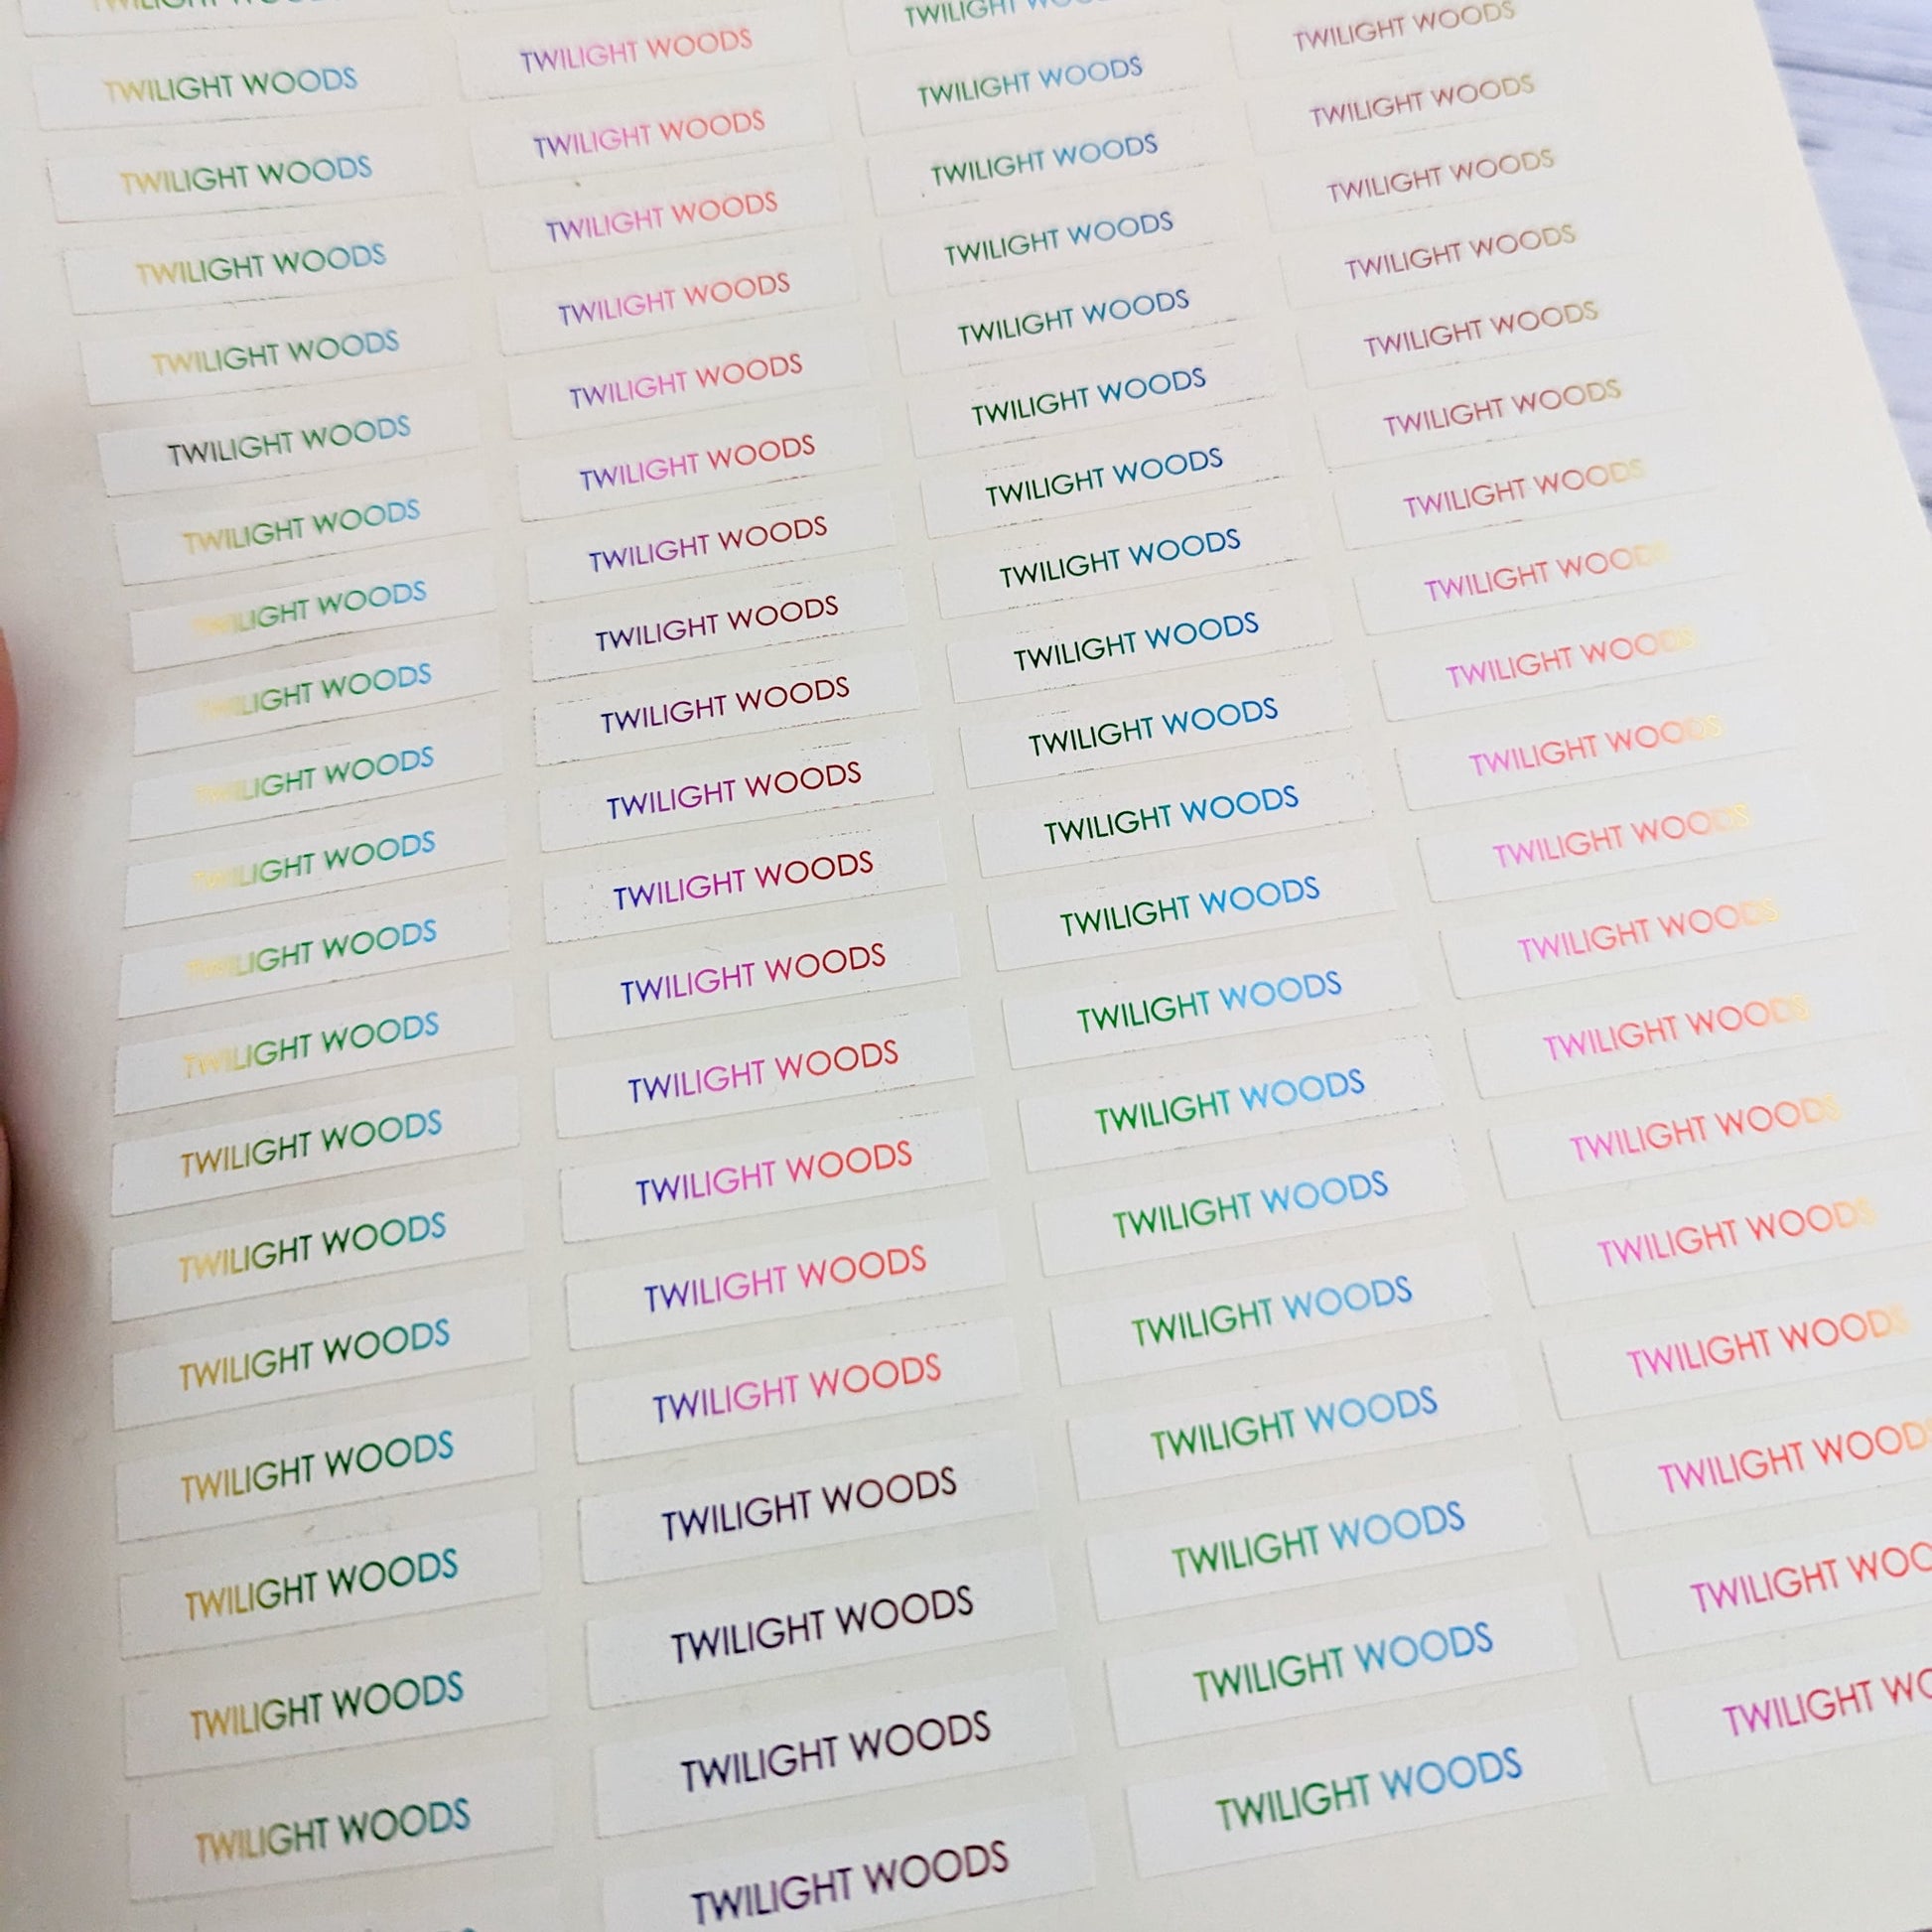 TWILIGHT WOODS
TWILIGHT WOODS
TWILIGHT WOODS
TWILIGHT WOODS
TWILIGHT WOODS
TWILIGHT WOODS
TWILIGHT WOODS
TWILIGHT WOODS
TWILIGHT WOODS
TWILIGHT WOODS
TWILIGHT WOODS
TWILIGHT WOODS
TWILIGHT WOODS
TWILIGHT WOODS
TWILIGHT WOODS
TWILIGHT WOODS
TWILIGHT WOODS
TWILIGHT WOODS
TWILIGHT WOODS
TWILIGHT WOODS
TWILIGHT WOODS
TWILIGHT WOODS
TWILIGHT WOODS
TWILIGHT WOODS
TWILIGHT WOODS
TWILIGHT WOODS
TWILIGHT WOODS
TWILIGHT WOODS
TWILIGHT WOODS
TWILIGHT WOODS
TWILIGHT WOODS
TWILIGHT WOODS
TWILIGHT WOODS
TWILIGHT WOODS
TWILIGHT WOODS
TWILIGHT WOODS
TWILIGHT WOODS
TWILIGHT WOODS
TWILIGHT WOODS
TWILIGHT WOODS
TWILIGHT WOODS
TWILIGHT WOODS
TWILIGHT WOODS
TWILIGHT WOODS
TWILIGHT WOODS
TWILIGHT WOODS
TWILIGHT WOODS
TWILIGHT WOODS
TWILIGHT WOODS
TWILIGHT WOODS
TWILIGHT WOODS
TWILIGHT WOODS
TWILIGHT WOODS
TWILIGHT WOODS
TWILIGHT WOODS
TWILIGHT WOODS
TWILIGHT WOODS
TWILIGHT WOODS
TWILIGHT WOODS
TWILIGHT WOODS
TWILIGHT WOODS
TWILIGHT WOODS
TWILIGHT WOODS
TWILIGHT WOODS
TWILIGHT WOODS
TWILIGHT WOODS
TWILIGHT WOODS
TWILIGHT WOODS
TWILIGHT WOODS
TWILIGHT WOODS
TWILIGHT WOODS
TWILIGHT WOODS
TWILIGHT WOODS
TWILIGHT WOODS
TWILIGHT WOODS
TWILIGHT WOOD
TWILIGHT WOO
TWILIGHT WO